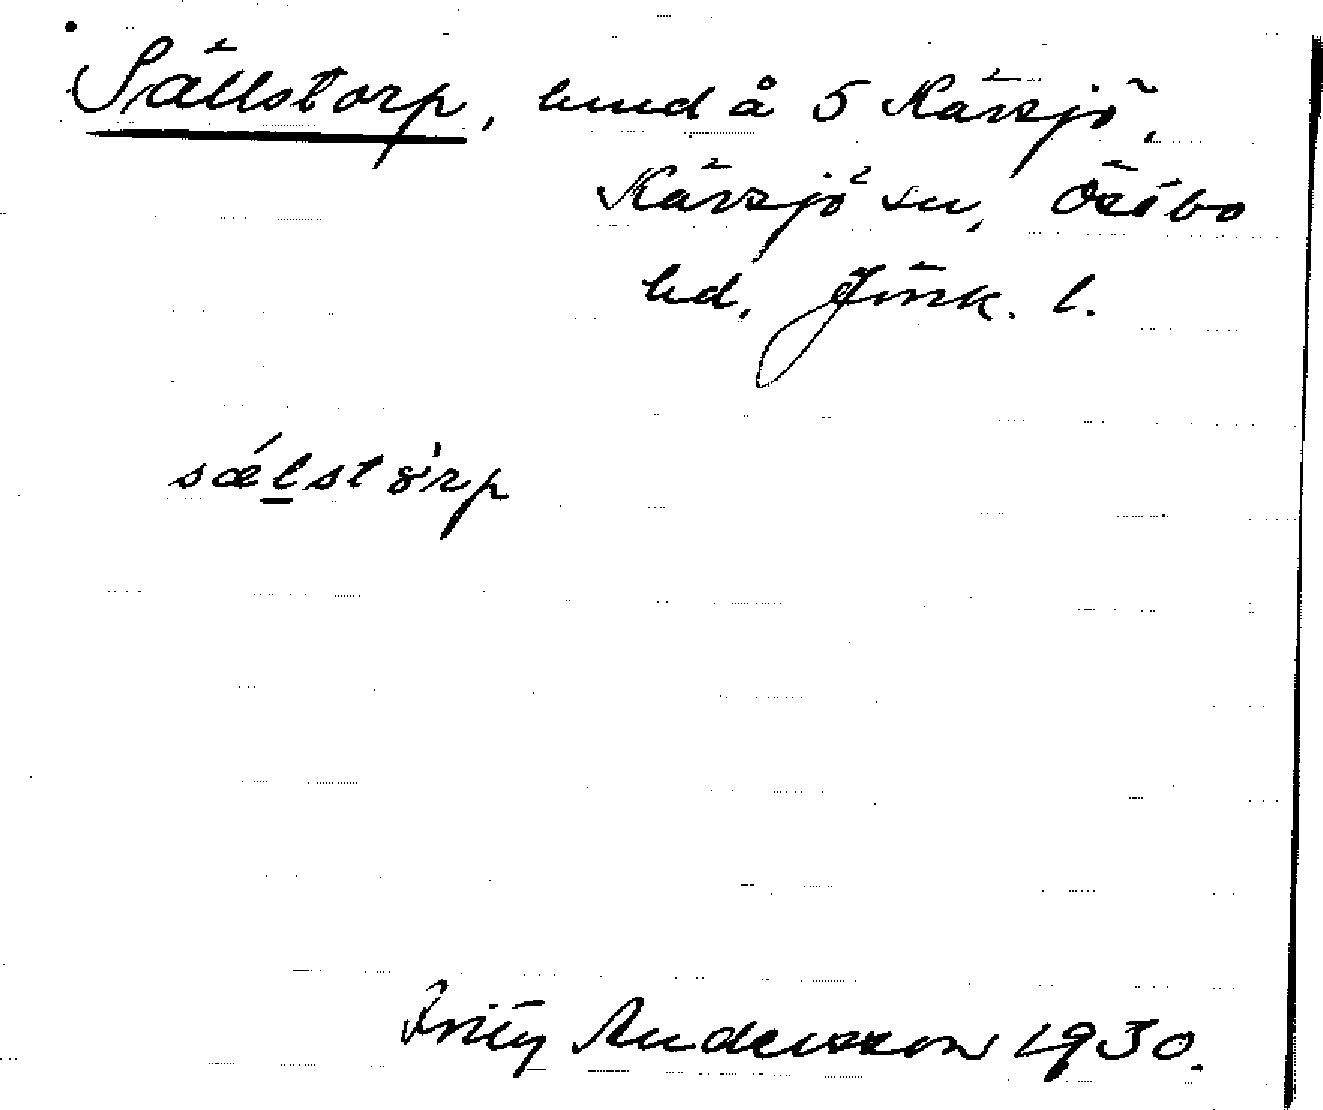 Sällstorp, lund å 5 Kärsjö,
Kärsjö sn, Östbo
hd, Jönk. l.
sælstorp
Fritz Andersson 1930.